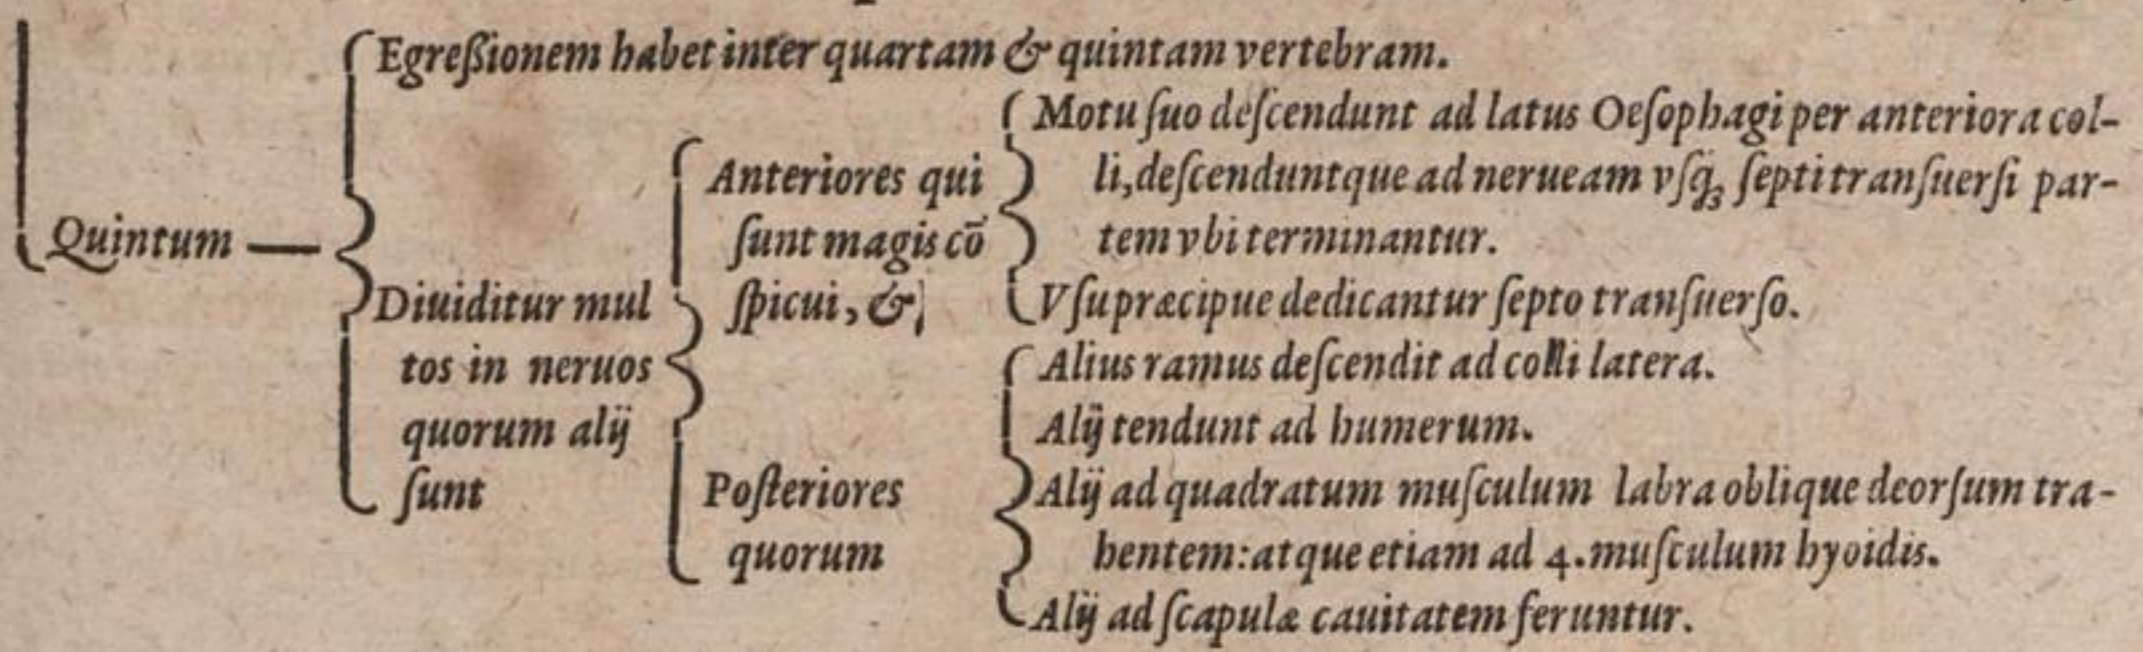 Egreßionem habet inter quartam & quintam vertebram.
Quintum
Diuiditur mul
tos in neruos
quorum alij
ſunt
Anteriores qui
ſunt magis cō
ſpicui, &
Motu ſuo deſcendunt ad latus Oeſophagi per anteriora col-
li, deſcenduntque ad nerueam vſq̃ꝫ ſepti tranſuerſi par-
tem vbi terminantur.
Vſu præcipue dedicantur ſepto tranſuerſo.
Poſteriores
quorum
Alius ramus deſcendit ad colli latera.
Alij tendunt ad humerum.
Alij ad quadratum muſculum labra oblique deorſum tra-
hentem: atque etiam ad 4. muſculum hyoidis.
Alij ad ſcapulæ cauitatem feruntur.